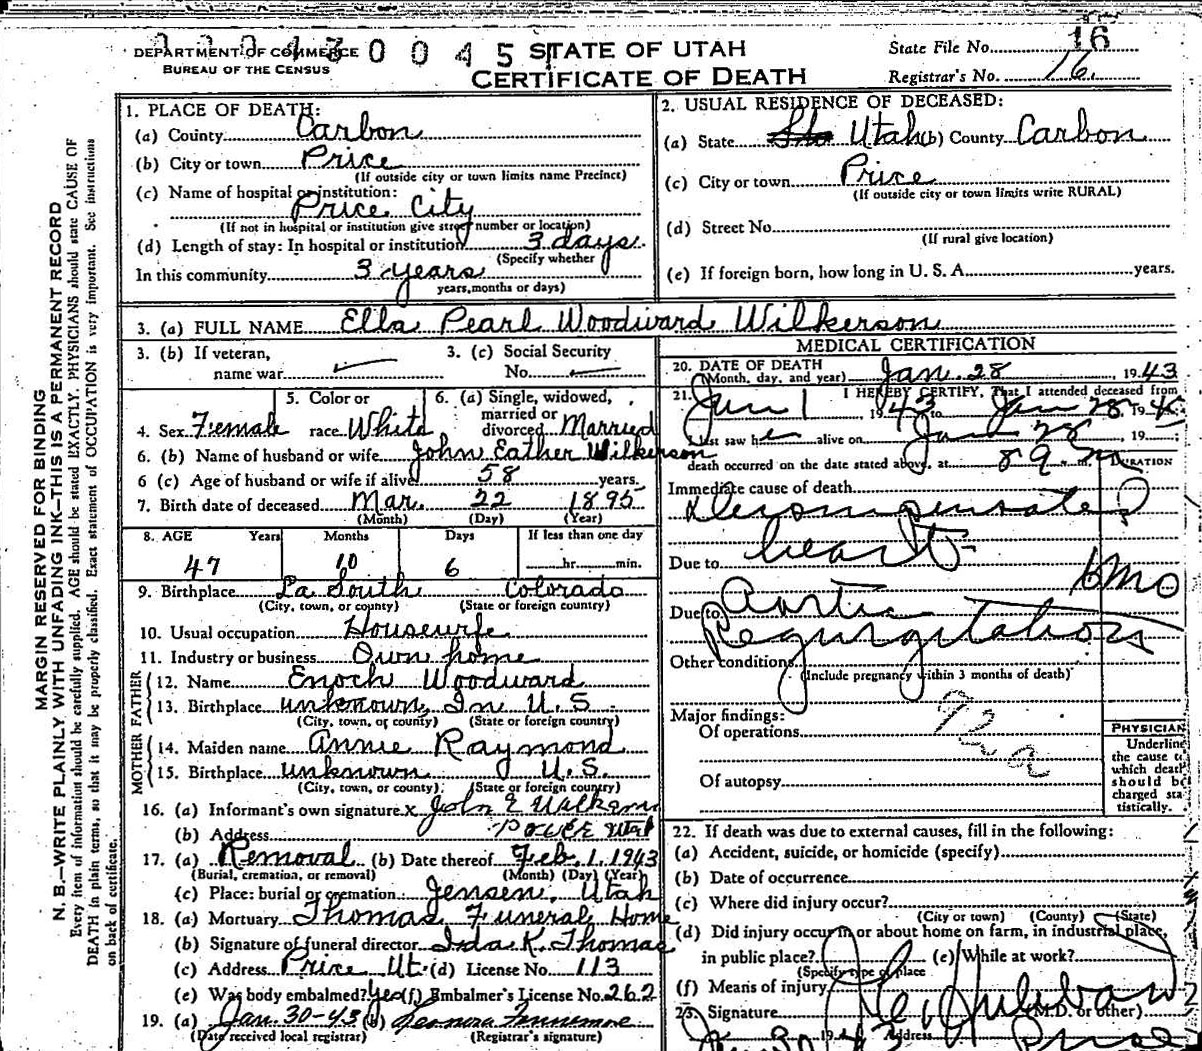 DEPARTMENT OF COMMERCE
BUREAU OF THE CENSUS
0045
STATE OF UTAH
CERTIFICATE OF DEATH
State File No. 16
Registrar's No. 16.
MARGIN RESERVED FOR BINDING
N. B.—WRITE PLAINLY WITH UNFADING INK—THIS IS A PERMANENT RECORD
Every item of information should be carefully supplied. AGE should be stated EXACTLY. PHYSICIANS should state CAUSE OF
DEATH in plain terms, so that it may be properly classified. Exact statement of OCCUPATION is very important. See instructions
on back of certificate.
1. PLACE OF DEATH:
(a) County Carbon
(b) City or town Price
(If outside city or town limits name Precinct)
(c) Name of hospital or institution:
Price City
(If not in hospital or institution give street number or location)
(d) Length of stay: In hospital or institution 3 days.
(Specify whether
In this community 3 years
years, months or days)
2. USUAL RESIDENCE OF DECEASED:
(a) State Utah (b) County Carbon
(c) City or town Price
(If outside city or town limits write RURAL)
(d) Street No.
(If rural give location)
(e) If foreign born, how long in U. S. A. years.
3. (a) FULL NAME Ella Pearl Woodward Wilkerson
3. (b) If veteran,
name war
3. (c) Social Security
No.
4. Sex Female
5. Color or
race White
6. (a) Single, widowed,
married or
divorced Married
6. (b) Name of husband or wife John Eather Wilkerson
6 (c) Age of husband or wife if alive 58 years.
7. Birth date of deceased Mar. 22 1895
(Month) (Day) (Year)
8. AGE Years Months Days If less than one day
47 10 6 hr. min.
9. Birthplace La South Colorado
(City, town, or county) (State or foreign country)
10. Usual occupation Housewife
11. Industry or business Own home
FATHER
12. Name Enoch Woodward
13. Birthplace unknown, In U. S.
(City, town, or county) (State or foreign country)
MOTHER
14. Maiden name Annie Raymond
15. Birthplace unknown U. S.
(City, town, or county) (State or foreign country)
16. (a) Informant's own signature x John E Wilkerson
(b) Address
17. (a) Removal (b) Date thereof Feb. 1, 1943
(Burial, cremation, or removal) (Month) (Day) (Year)
(c) Place: burial or cremation: Jensen, Utah
18. (a) Mortuary Thomas Funeral Home
(b) Signature of funeral director Ida K. Thomas
(c) Address Price Ut. (d) License No. 113
(e) Was body embalmed? Yes (f) Embalmer's License No. 262
19. (a) Jan. 30-43 (b)
(Date received local registrar) (Registrar's signature)
MEDICAL CERTIFICATION
20. DATE OF DEATH
(Month, day, and year) Jan. 28, 1943
21. I HEREBY CERTIFY, That I attended deceased from
Jan 1 1943 to Jan 28 19
I last saw her alive on Jan 28 19
death occurred on the date stated above, at 8 9 m DURATION
Immediate cause of death
Decompensated
heart
Due to
6 mo
Due to Aortic
Regurgitation
Other conditions
(Include pregnancy within 3 months of death)
Major findings:
Of operations
92a
Of autopsy
PHYSICIAN
Underline
the cause to
which death
should be
charged sta-
tistically.
22. If death was due to external causes, fill in the following:
(a) Accident, suicide, or homicide (specify)
(b) Date of occurrence
(c) Where did injury occur?
(City or town) (County) (State)
(d) Did injury occur in or about home on farm, in industrial place,
in public place? (e) While at work?
(Specify type of place
(f) Means of injury
23. Signature (M.D. or other)
Jan 30 1943 Address Price